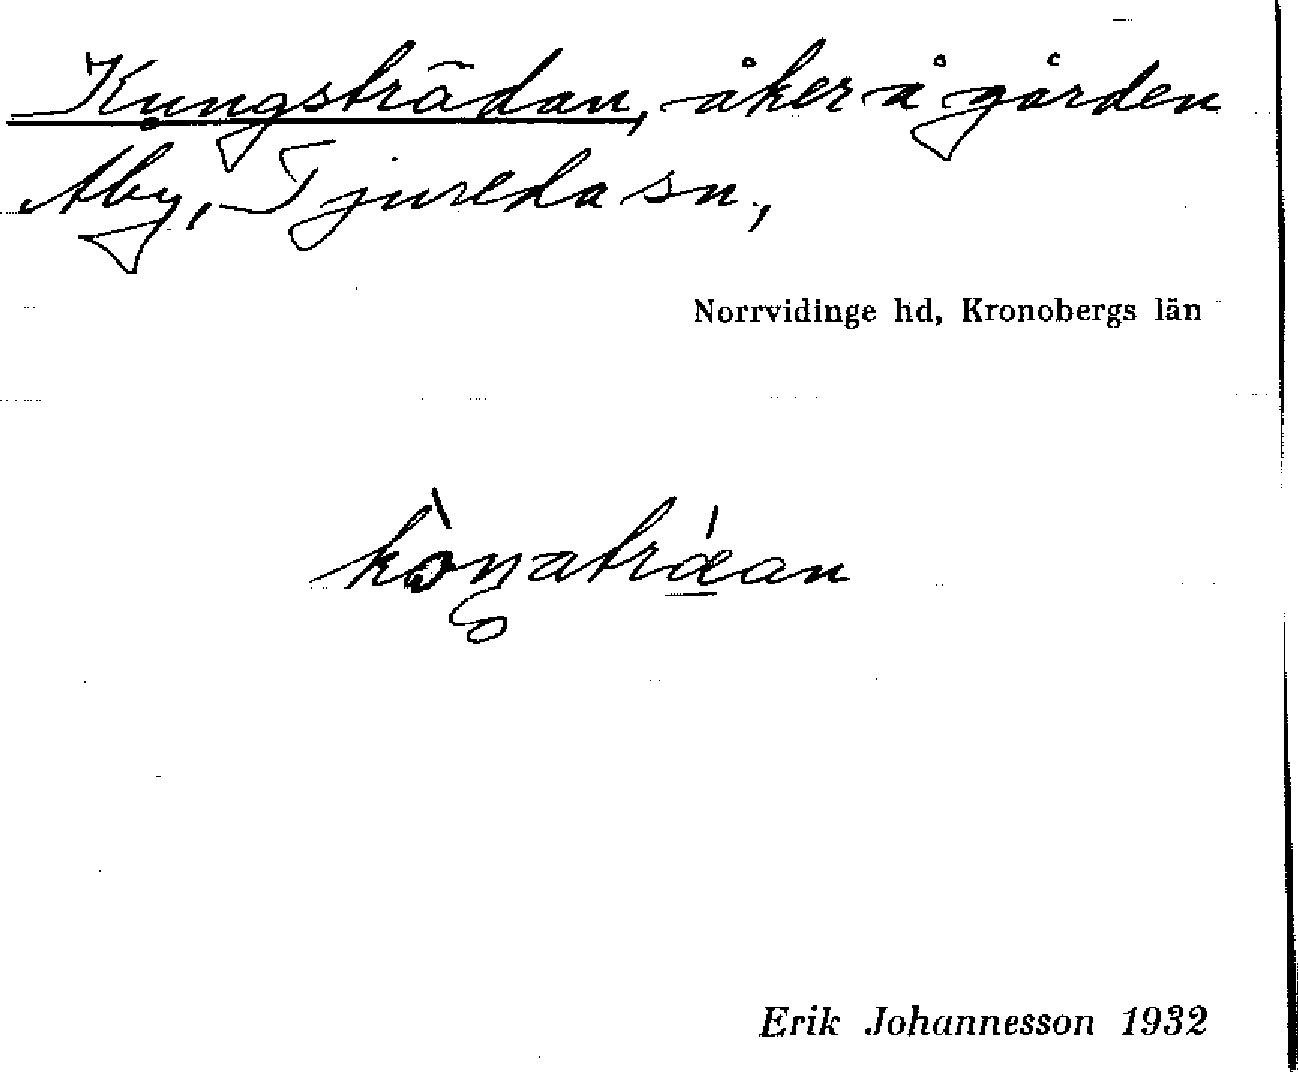 Kungsträdan, åker å gården
Åby, Tjureda sn.,
Norrvidinge hd, Kronobergs län
Erik Johannesson 1932